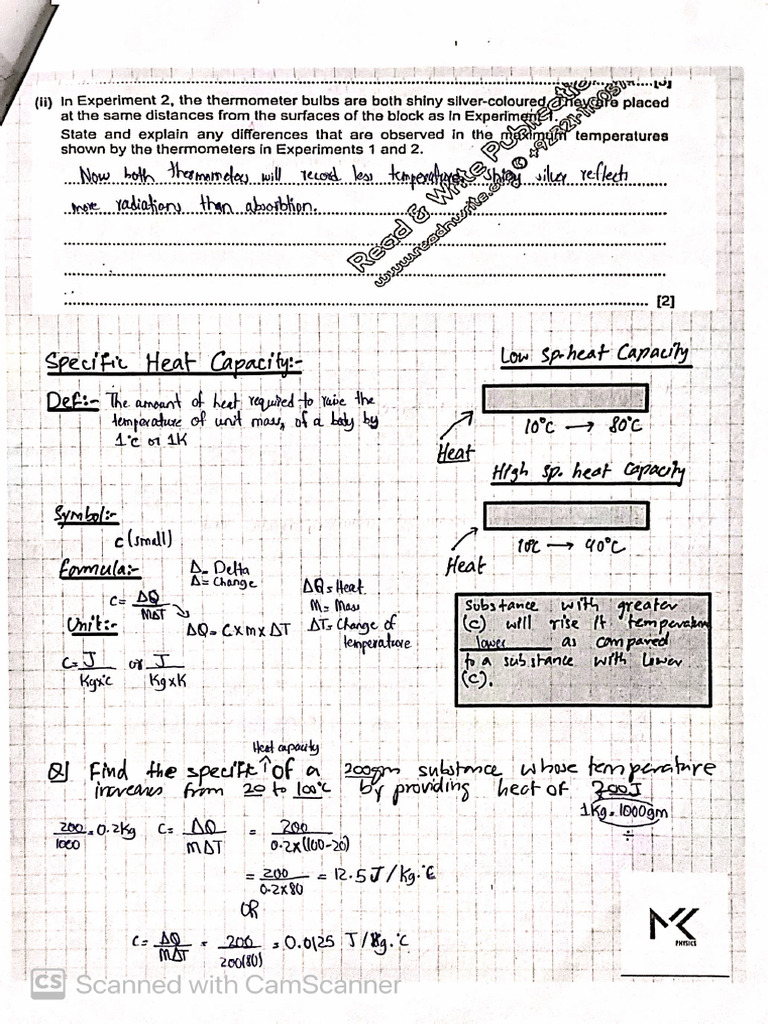 (ii) In Experiment 2, the thermometer bulbs are both shiny silver-coloured. They are placed
at the same distances from the surfaces of the block as in Experiment 1.
State and explain any differences that are observed in the maximum temperatures
shown by the thermometers in Experiments 1 and 2.
Now both thermometers will record less temperature shiny silver reflects
more radiations than absorbtion.
[2]
Read & Write Publications
Specific Heat Capacity:-
Def:- The amount of heat required to raise the
temperature of unit mass, of a body by
1°c or 1K
Low sp.heat Capacity
10°c → 80°c
Heat
High sp. heat Capacity
10c → 40°c
Heat
Symbol:-
c (small)
Formula:-
Δ = Delta
Δ = Change
C = ΔQ / MΔT
ΔQ = C x m x ΔT
ΔQ = Heat
M = Mass
ΔT = Change of
temperature
Unit:-
C = J / Kgx°c or J / Kg x K
Substance with greater
(C) will rise it temperature
lower as compared
to a substance with lower
(C).
Heat capacity
Q) Find the specific ↑ of a 200gm substance whose temperature
increases from 20 to 100°c by providing heat of 200J
1Kg = 1000gm
÷
200/1000 = 0.2Kg C = ΔQ / MΔT = 200 / 0.2x(100-20)
= 200 / 0.2x80 = 12.5 J/kg.°C
OR
C = ΔQ / MΔT = 200 / 200(80) = 0.0125 J/g.°C
MK
PHYSICS
CS Scanned with CamScanner